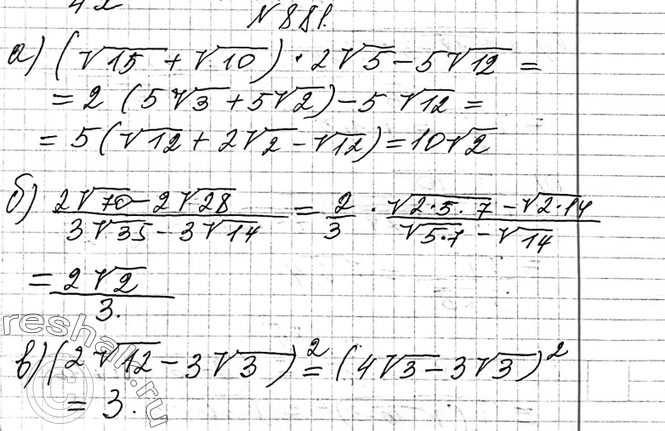 42
№881.
а) (√15 + √10) · 2√5 - 5√12 =
= 2 (5√3 + 5√2) - 5√12 =
= 5 (√12 + 2√2 - √12) = 10√2
б) (2√70 - 2√28)/(3√35 - 3√14) = 2/3 · (√(2·5·7) - √(2·14))/(√(5·7) - √14)
= 2√2/3.
в) (2√12 - 3√3)² = (4√3 - 3√3)²
= 3.
reshak.ru